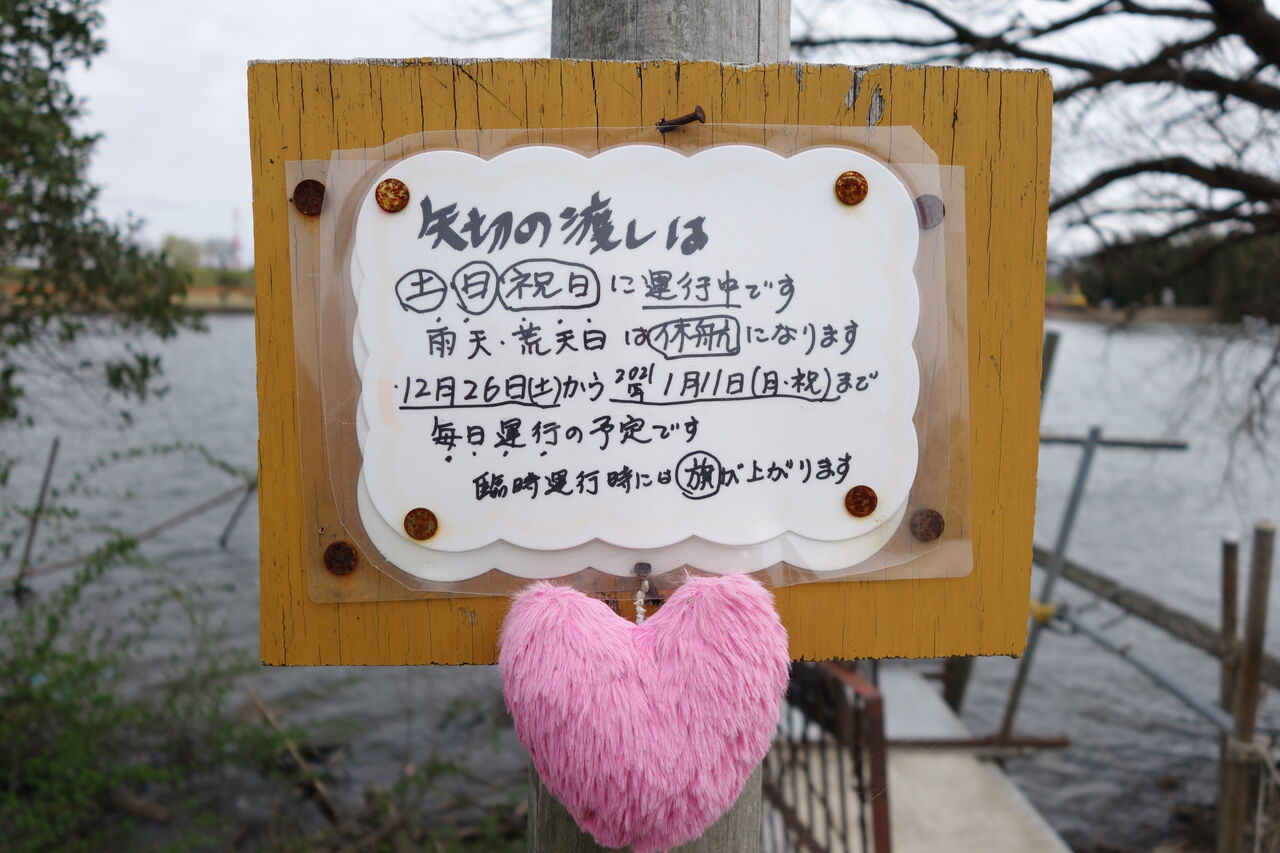 矢切の渡しは
土・日・祝日に運行中です
雨天・荒天日は休舟になります
・12月26日(土)から2021年1月11日(月・祝)まで
毎日運行の予定です
臨時運行時には旗が上がります